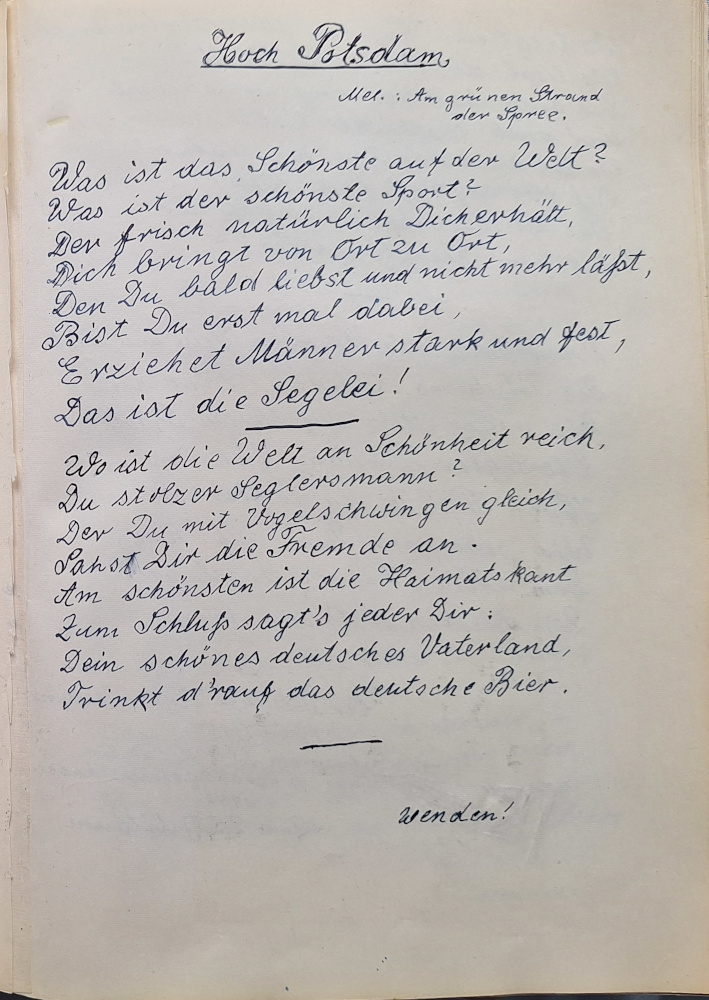 Hoch Potsdam,
Mel.: Am grünen Strand
der Spree.
Was ist das Schönste auf der Welt?
Was ist der schönste Sport?
Der frisch natürlich Dich erhält,
Dich bringt von Ort zu Ort,
Den Du bald liebst und nicht mehr läßt,
Bist Du erst mal dabei,
Erziehet Männer stark und fest,
Das ist die Segelei!
Wo ist die Welt an Schönheit reich,
Du stolzer Seglersmann?
Der Du mit Vogelschwingen gleich,
Sahst Dir die Fremde an.
Am schönsten ist die Haimatskant
Zum Schluß sagt's jeder Dir:
Dein schönes deutsches Vaterland,
Trinkt d'rauf das deutsche Bier.
wenden!